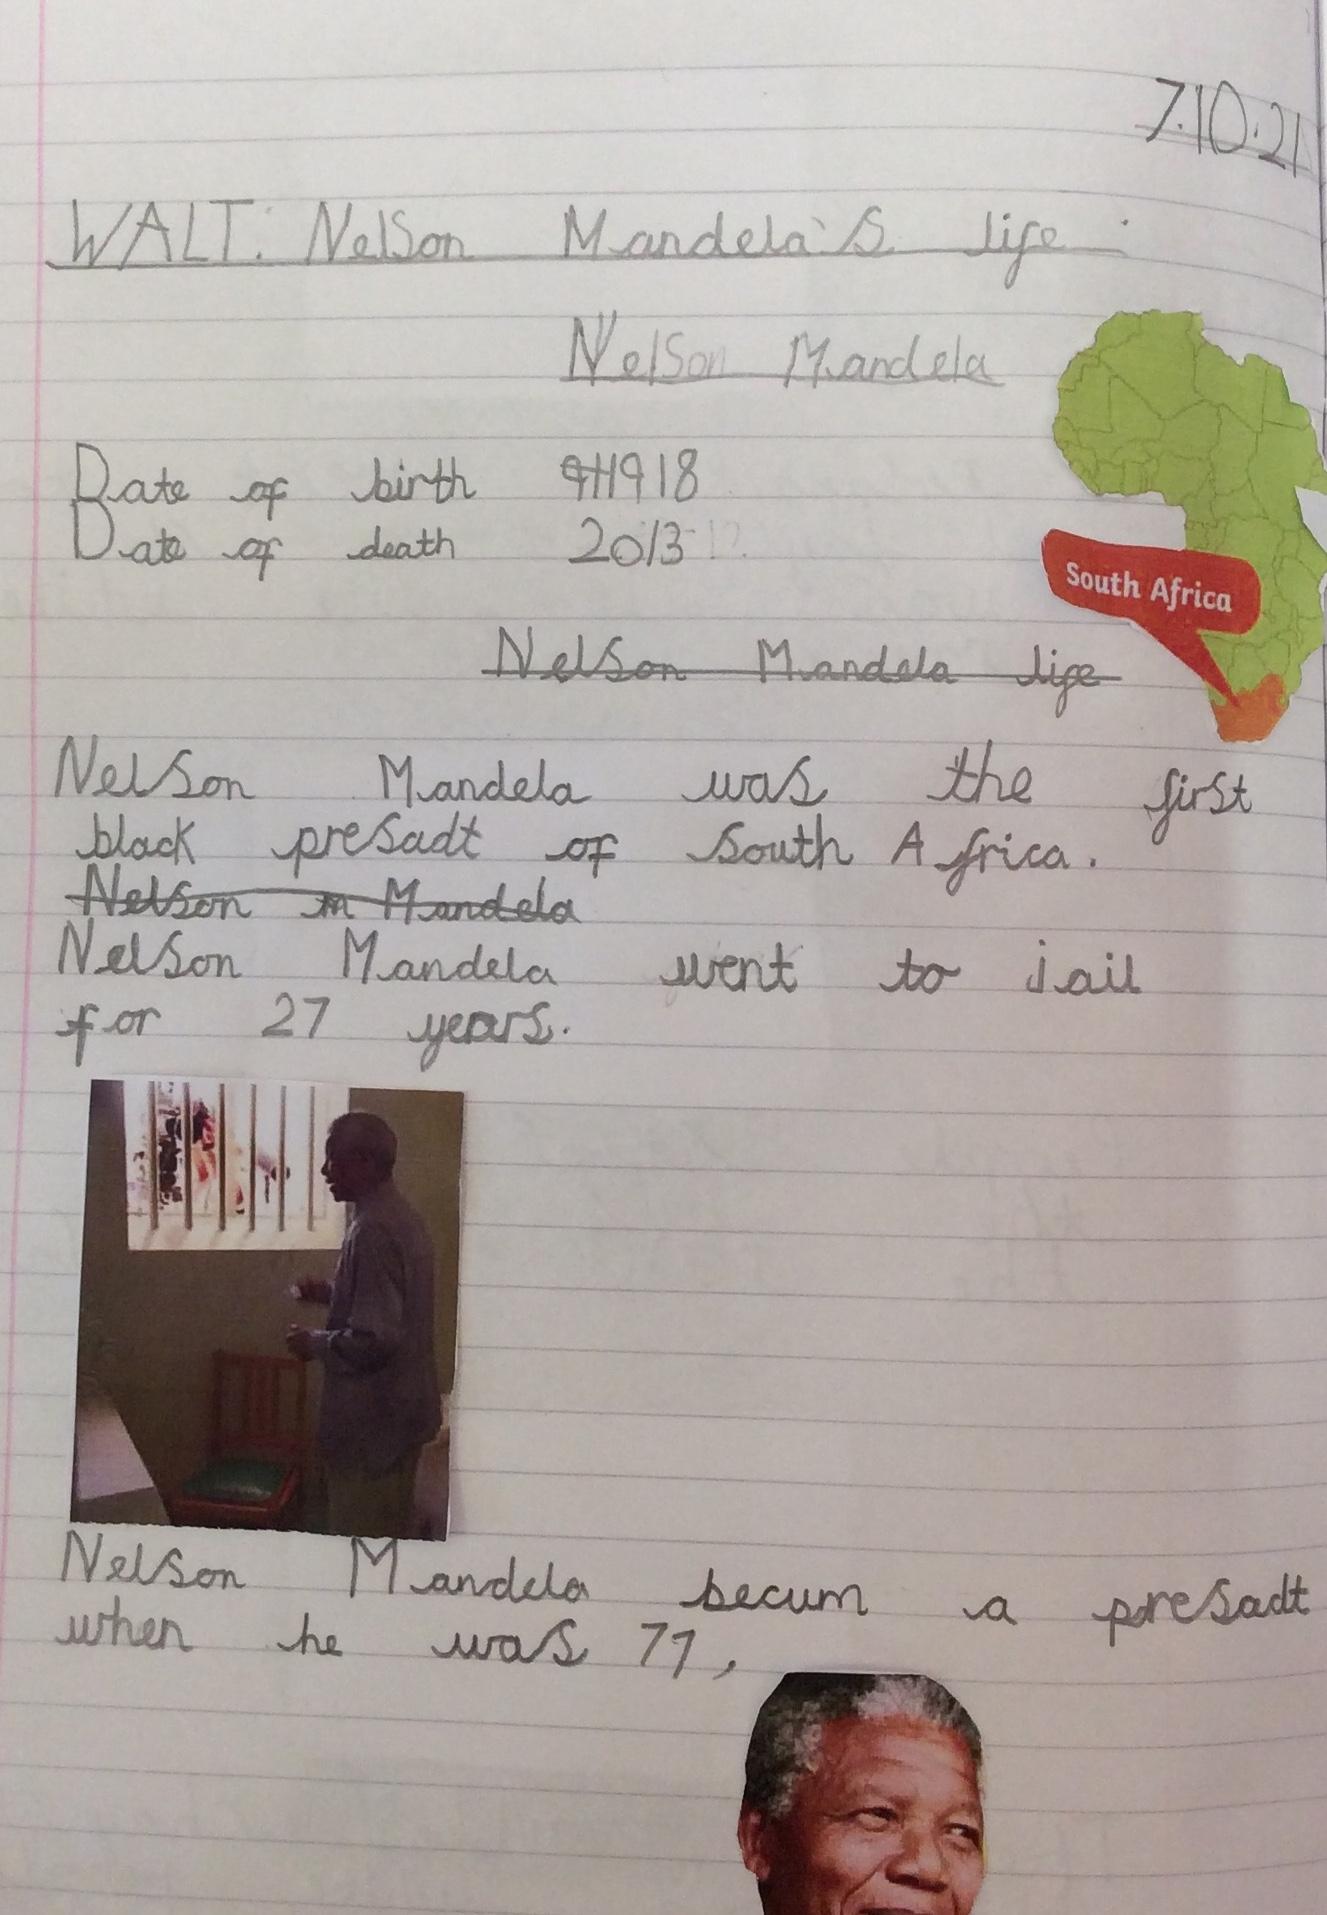 7.10.21
WALT: Nelson Mandela's life
Nelson Mandela
Date of birth 1918
Date of death 2013
South Africa
Nelson Mandela life
Nelson Mandela was the first
black presadt of South Africa.
Nelson m Mandela
Nelson Mandela went to jail
for 27 years.
Nelson Mandela becum a presadt
when he was 77,